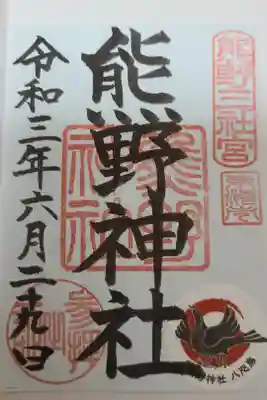 熊野三社宮
熊野神社
令和三年六月二十九日
神社 八咫烏